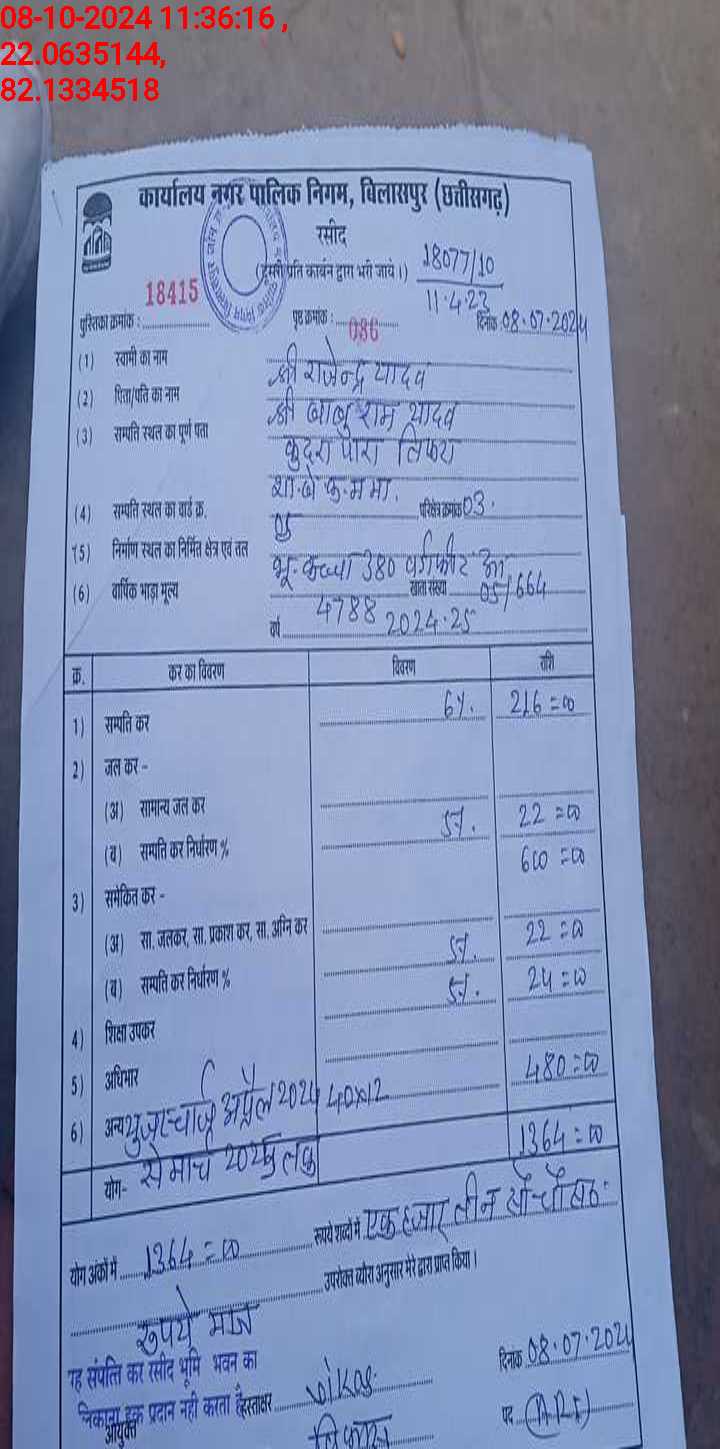 08-10-2024 11:36:16 ,
22.0635144,
82.1334518
कार्यालय नगर पालिक निगम, बिलासपुर (छत्तीसगढ़)
रसीद
(दूसरी प्रति कार्बन द्वारा भरी जाये।) 18077/10
18415 11.4.23
पुस्तिका क्रमांक : पृष्ठ क्रमांक : 086 दिनांक 08.07.2024
(1) स्वामी का नाम श्री राजेन्द्र यादव
(2) पिता/पति का नाम श्री बाबु राम यादव
(3) सम्पति स्थल का पूर्ण पता कुदरा पारा तिफरा
(4) सम्पति स्थल का वार्ड क्र. 05 परिक्षेत्र क्रमांक 03.
(5) निर्माण स्थल का निर्मित क्षेत्र एवं तल भू. कच्चा 380 वर्गफीट
(6) वार्षिक भाड़ा मूल्य 4788 खाता संख्या 05/664
वर्ष 2024.25
क्र. कर का विवरण विवरण राशि
1) सम्पति कर 6%. 216=00
2) जल कर -
(अ) सामान्य जल कर 22=00
(ब) सम्पति कर निर्धारण % 600=00
3) समेकित कर -
(अ) सा. जलकर, सा. प्रकाश कर, सा. अग्नि कर 22=00
(ब) सम्पति कर निर्धारण % 24=00
4) शिक्षा उपकर
5) अधिभार 480=00
6) अन्य युजर चार्ज अप्रैल 2024 40x12
योग- से मार्च 2025 तक 1364=00
योग अंकों में 1364=00 रूपये शब्दों में एक हजार तीन सौ चौसठ
उपरोक्त ब्योरा अनुसार मेरे द्वारा प्राप्त किया।
रूपये मात्र
यह संपत्ति कर रसीद भूमि भवन का दिनांक 08.07.2024
हक प्रदान नही करता है हस्ताक्षर vikas पद (ARI)
आयुक्त विकास